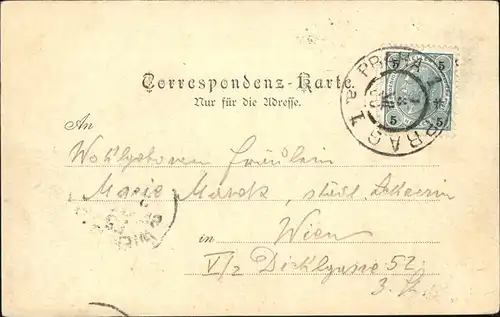 Correspondenz-Karte.
Nur für die Adresse.
PRAHA 1 PRAG 1
5 5
5 5
An
Wohlgeboren Fräulein
Marie Marek, städt. Lehrerin
in Wien
V/2 Diehlgasse 52
3.